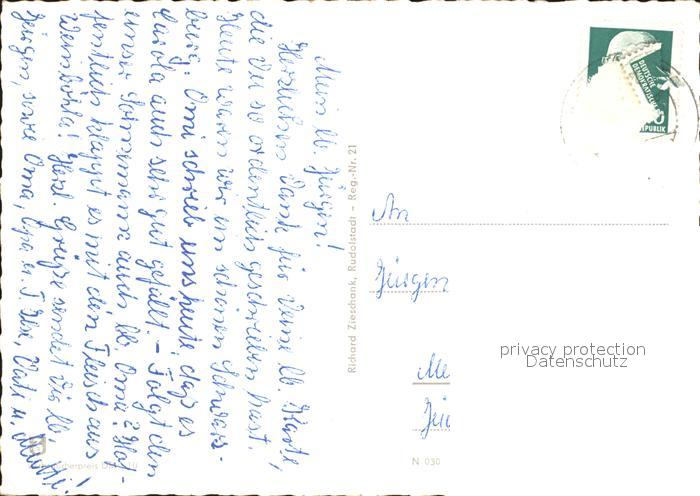 Mein lb. Jürgen!
Herzlichen Dank für Deine lb. Karte,
die Du so ordentlich geschrieben hast.
Heute waren wir im schönen Schwarz-
burg. Omi schrieb uns heute, daß es
Carola auch sehr gut gefällt. - Folgt denn
unser Sonnemann auch lb. Oma? Hof-
fentlich klappt es mit den Fleisch aus
Weinböhla! Herzl. Grüße sendet Dir lb.
Jürgen, sowie Oma, Opa u. T. Ilse, Vati u. Mutti!
Richard Zieschank, Rudolstadt - Reg.-Nr. 21
DEUTSCHE
DEMOKRATISCHE
REPUBLIK
An
Jürgen
privacy protection
Datenschutz
N 030